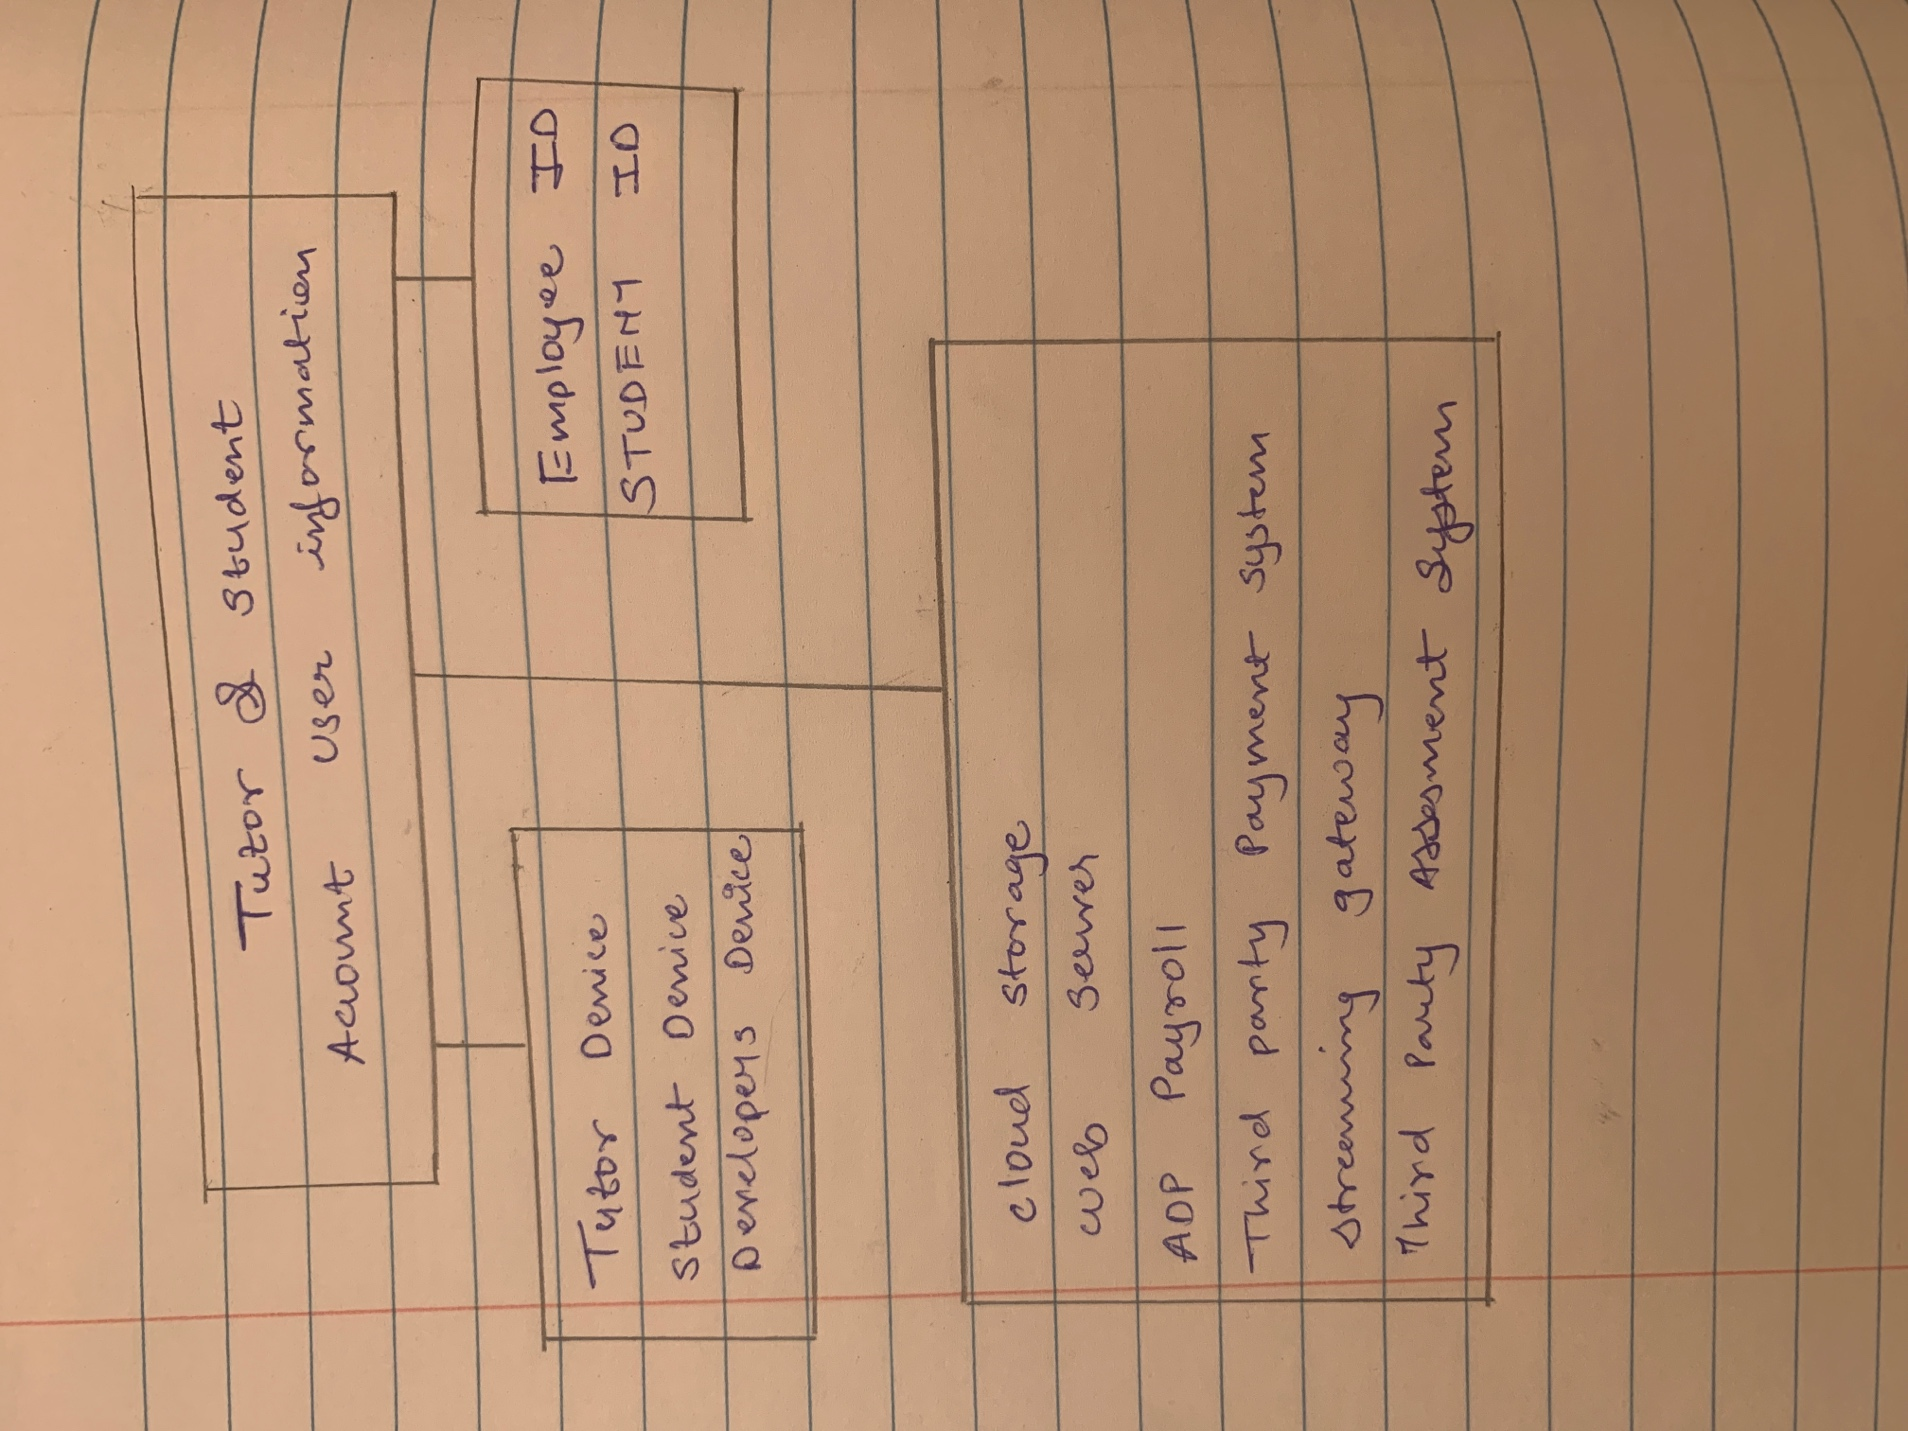 Tutor & Student
Account user information
Tutor Device
Student Device
Developers Device
Employee ID
STUDENT ID
cloud storage
web server
ADP Payroll
Third party Payment system
streaming gateway
Third Party Assesment System